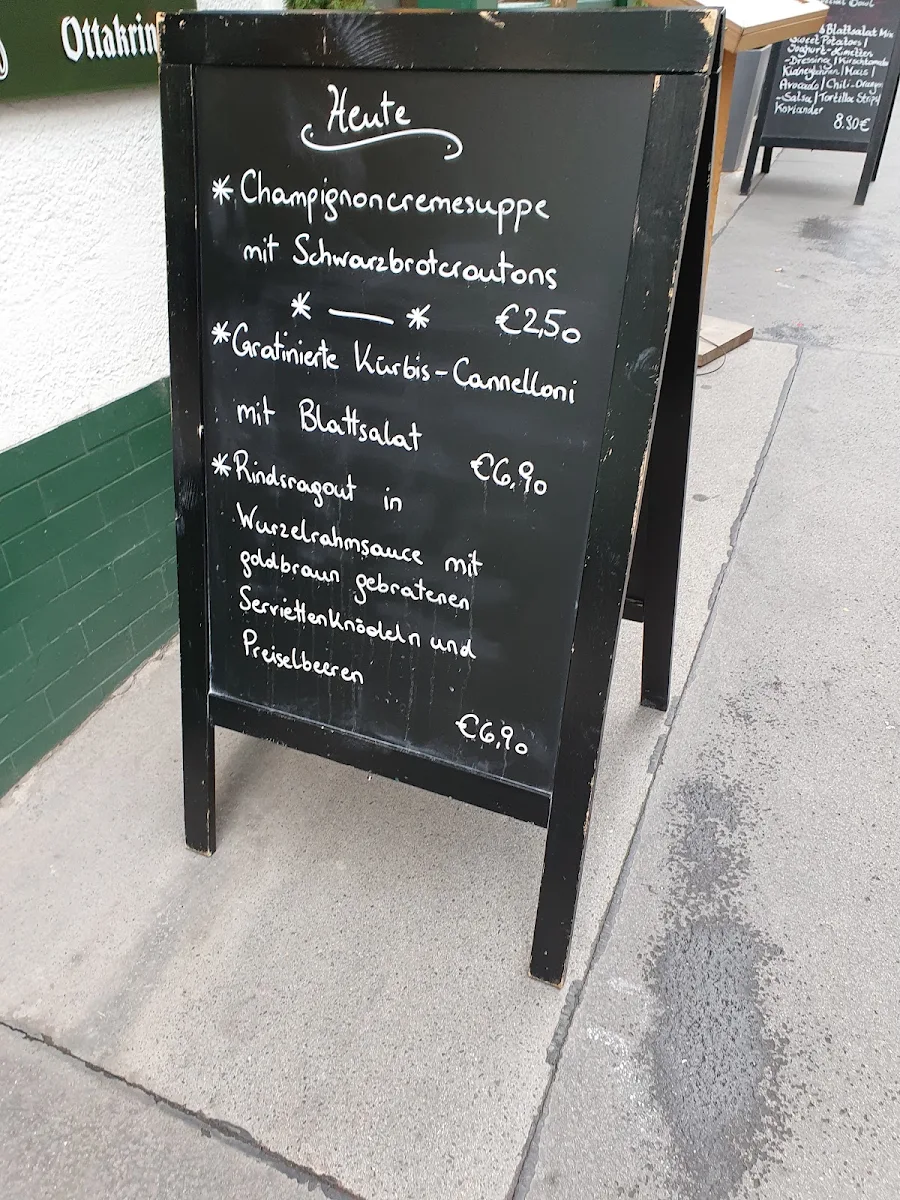 Ottakrin
Heute
* Champignoncremesuppe
mit Schwarzbrotcroutons
* — * €2,50
* Gratinierte Kürbis-Cannelloni
mit Blattsalat
€6,90
* Rindsragout in
Wurzelrahmsauce mit
goldbraun gebratenen
Serviettenknödeln und
Preiselbeeren
€6,90
Bowl
Blattsalat Mix
Sweet Potatoes |
Joghurt-Limetten
-Dressing | Kirschtomate
Kidneybohnen | Mais |
Avocado | Chili-Orangen
-Salsa | Tortilla Strips |
Koriander
8.90€